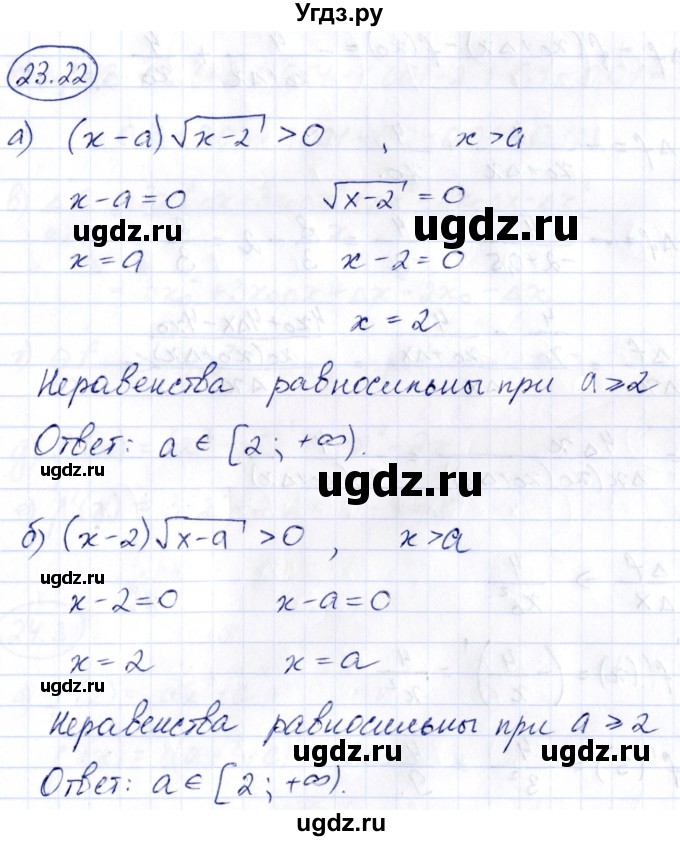 Угдз.ру
23.22
а) (x-a)√(x-2) > 0 , x>a
x-a=0 √(x-2) = 0
ugdz.ru ugdz.ru
x=a x-2=0
x=2
Неравенства равносильны при a⩾2
ugdz.ru ugdz.ru
Ответ: a ∈ [2; +∞).
ugdz.ru ugdz.ru
б) (x-2)√(x-a) > 0 , x>a
ugdz.ru ugdz.ru
x-2=0 x-a=0
x=2 x=a
ugdz.ru
Неравенства равносильны при a⩾2
ugdz.ru ugdz.ru
Ответ: a∈[2; +∞).
ugdz.ru
ugdz.ru